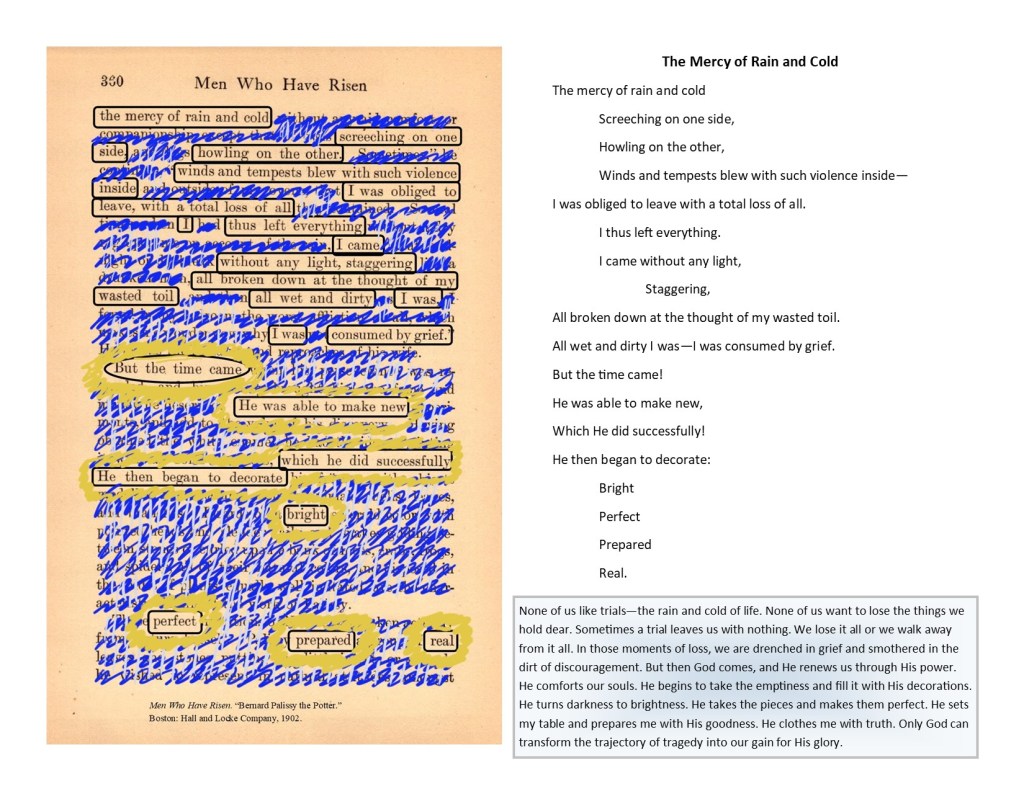 330 Men Who Have Risen
the mercy of rain and cold
screeching on one
side, howling on the other.
winds and tempests blew with such violence
inside I was obliged to
leave, with a total loss of all
I thus left everything
I came
without any light, staggering
all broken down at the thought of my
wasted toil all wet and dirty I was
I was consumed by grief."
But the time came
He was able to make new
which he did successfully
He then began to decorate
bright
perfect
prepared real
Men Who Have Risen. "Bernard Palissy the Potter."
Boston: Hall and Locke Company, 1902.
The Mercy of Rain and Cold
The mercy of rain and cold
Screeching on one side,
Howling on the other,
Winds and tempests blew with such violence inside—
I was obliged to leave with a total loss of all.
I thus left everything.
I came without any light,
Staggering,
All broken down at the thought of my wasted toil.
All wet and dirty I was—I was consumed by grief.
But the time came!
He was able to make new,
Which He did successfully!
He then began to decorate:
Bright
Perfect
Prepared
Real.
None of us like trials—the rain and cold of life. None of us want to lose the things we
hold dear. Sometimes a trial leaves us with nothing. We lose it all or we walk away
from it all. In those moments of loss, we are drenched in grief and smothered in the
dirt of discouragement. But then God comes, and He renews us through His power.
He comforts our souls. He begins to take the emptiness and fill it with His decorations.
He turns darkness to brightness. He takes the pieces and makes them perfect. He sets
my table and prepares me with His goodness. He clothes me with truth. Only God can
transform the trajectory of tragedy into our gain for His glory.